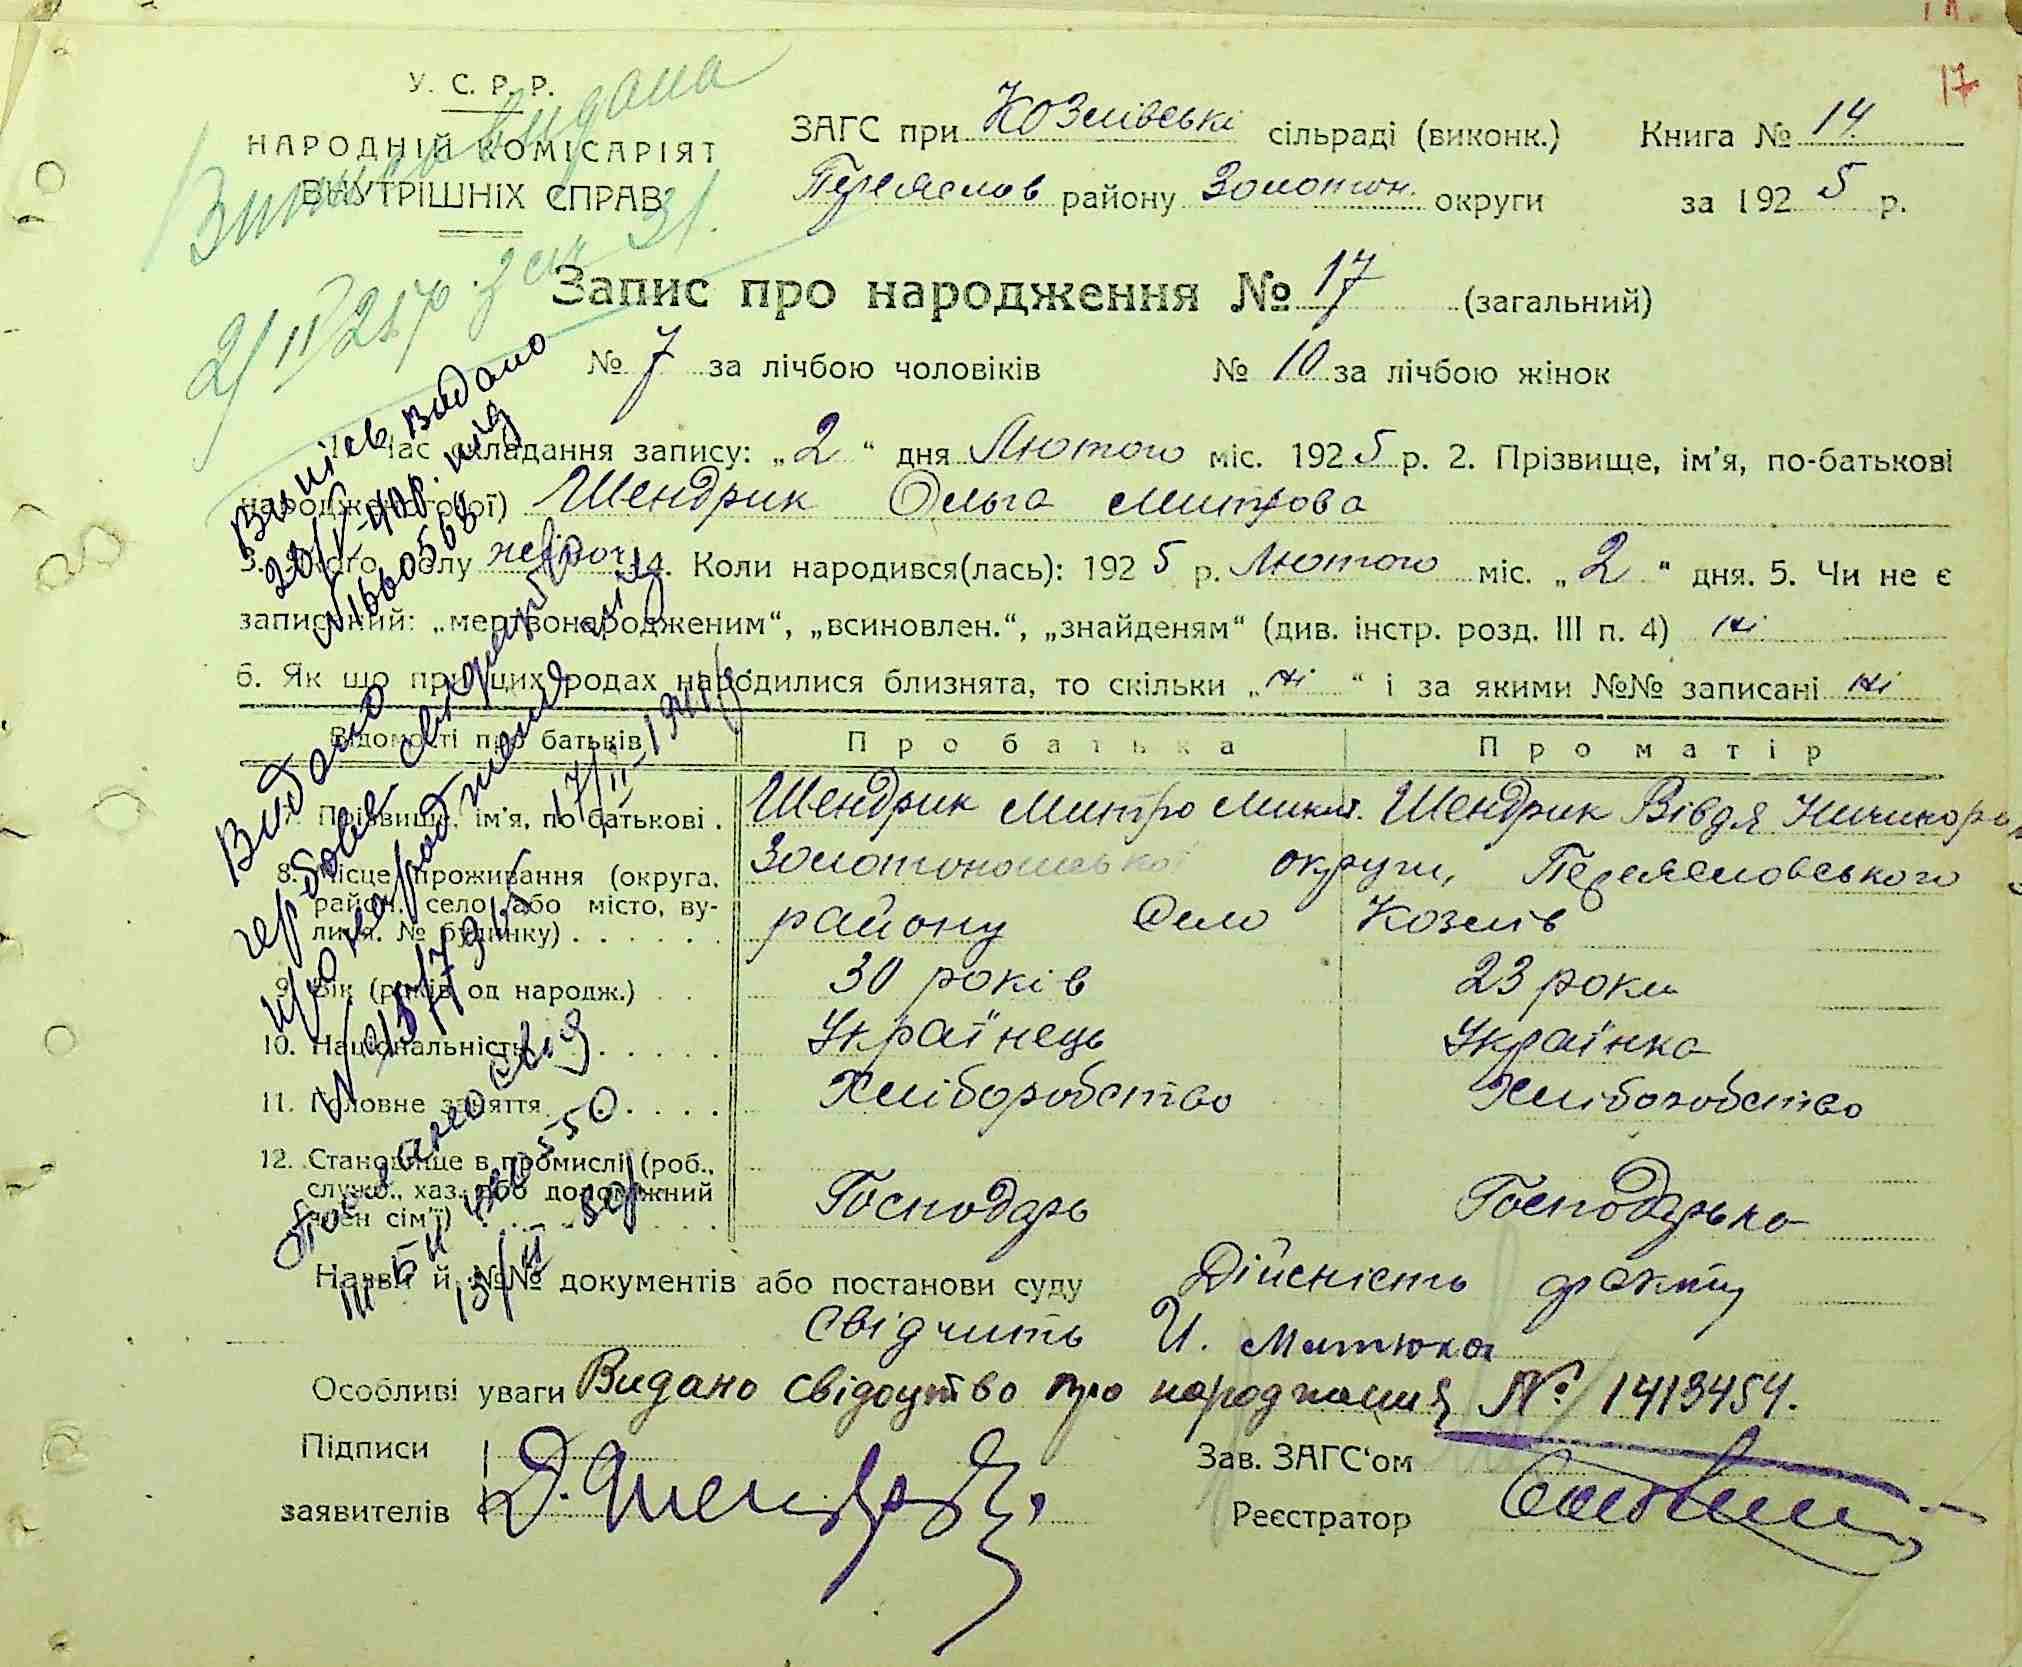 17
У. С. Р. Р.
НАРОДНІЙ КОМІСАРІЯТ
ВНУТРІШНІХ СПРАВ
ЗАГС при Козлівські сільраді (виконк.) Книга № 14
Переяслов району Золотон. округи за 1925 р.
Виписка видана
2/II 25 р. за № 31.
Запис про народження № 17 (загальний)
№ 7 за лічбою чоловіків № 10 за лічбою жінок
1. Час складання запису: „2“ дня Лютого міс. 1925 р. 2. Прізвище, ім'я, по-батькові
народженого(ої) Шендрик Ольга Митрова
3. Якого полу жіноч 4. Коли народився(лась): 1925 р. Лютого міс. „2“ дня. 5. Чи не є
записаний: „мертвонародженим“, „всиновлен.“, „знайденям“ (див. інстр. розд. III п. 4) ні
6. Як що при цих родах народилися близнята, то скільки „ні“ і за якими №№ записані ні
Відомості про батьків Про батька Про матір
7. Прізвище, ім'я, по батькові. Шендрик Митро Микит. Шендрик Вівдя Ничипоро
8. Місце проживання (округа, район, село або місто, вулиця, № будинку) Золотоношської округи, Переясловського
району село Козлів
9. Вік (років од народж.) 30 років 23 роки
10. Національність Українець Українка
11. Головне заняття Хліборобство Хліборобство
12. Становище в промислі (роб., служб., хаз. або допоміжний член сім'ї) Господарь Господарька
Назви й №№ документів або постанови суду Дійсність факту
свідчить И. Матюха
Особливі уваги Видано свідоцтво про народження № 1413454.
Підписи
заявителів Д. Шендр
Зав. ЗАГС'ом
Реєстратор
Випись видано
під
№ 1660568
Видано
гербове свидетельство
про народження
17/II-1941